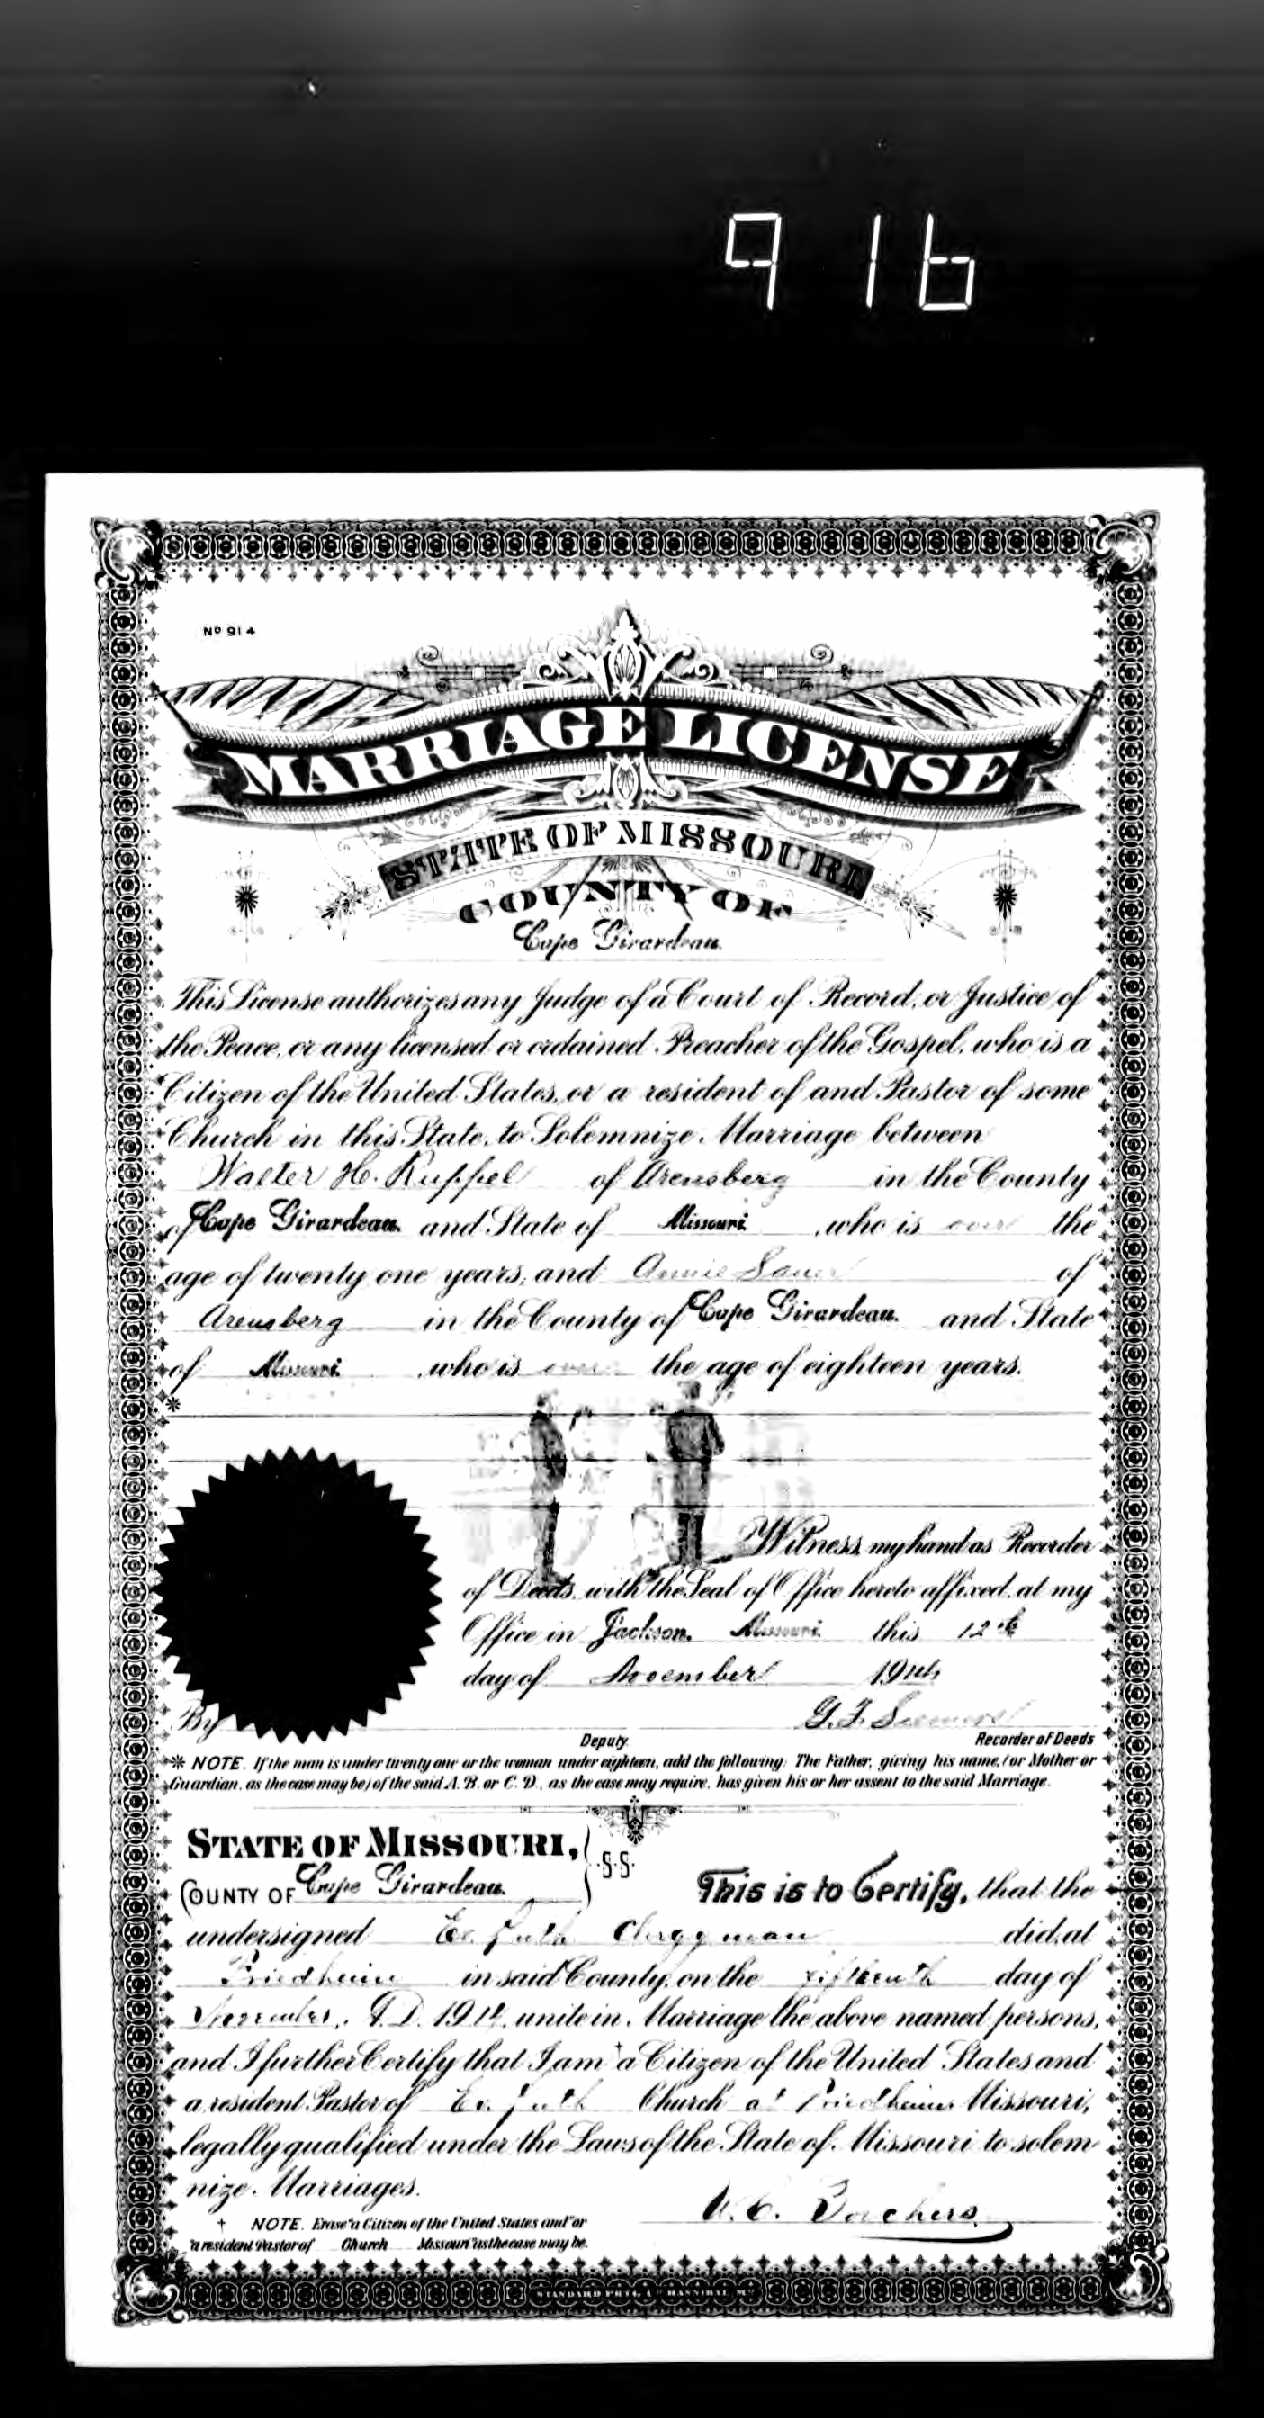 916
No 914
MARRIAGE LICENSE
STATE OF MISSOURI
COUNTY OF
Cape Girardeau.
This License authorizes any Judge of a Court of Record, or Justice of
the Peace, or any licensed or ordained Preacher of the Gospel, who is a
Citizen of the United States, or a resident of and Pastor of some
Church in this State, to Solemnize Marriage between
Walter H. Ruppel of Arensberg in the County
of Cape Girardeau. and State of Missouri , who is over the
age of twenty one years, and Annie Sauer of
Arensberg in the County of Cape Girardeau. and State
of Missouri , who is over the age of eighteen years.
*
Witness my hand as Recorder
of Deeds, with the Seal of Office hereto affixed, at my
Office in Jackson, Missouri this 12th
day of November 1914
By G. F. Siemers
Deputy. Recorder of Deeds
* NOTE. If the man is under twenty one or the woman under eighteen, add the following: The Father, giving his name, (or Mother or
Guardian, as the case may be) of the said A. B. or C. D., as the case may require, has given his or her assent to the said Marriage.
STATE OF MISSOURI,
COUNTY OF Cape Girardeau. } S.S. This is to Certify, that the
undersigned Ev. Luth Clergyman did, at
Friedheim in said County, on the fifteenth day of
November, A.D. 1914, unite in Marriage the above named persons,
and I further Certify that I am a Citizen of the United States and
a resident Pastor of Ev. Luth Church at Friedheim Missouri,
legally qualified under the Laws of the State of Missouri to solem-
nize Marriages.
+ NOTE. Erase "a Citizen of the United States and" or
"a resident Pastor of Church Missouri" as the case may be.
Borchers